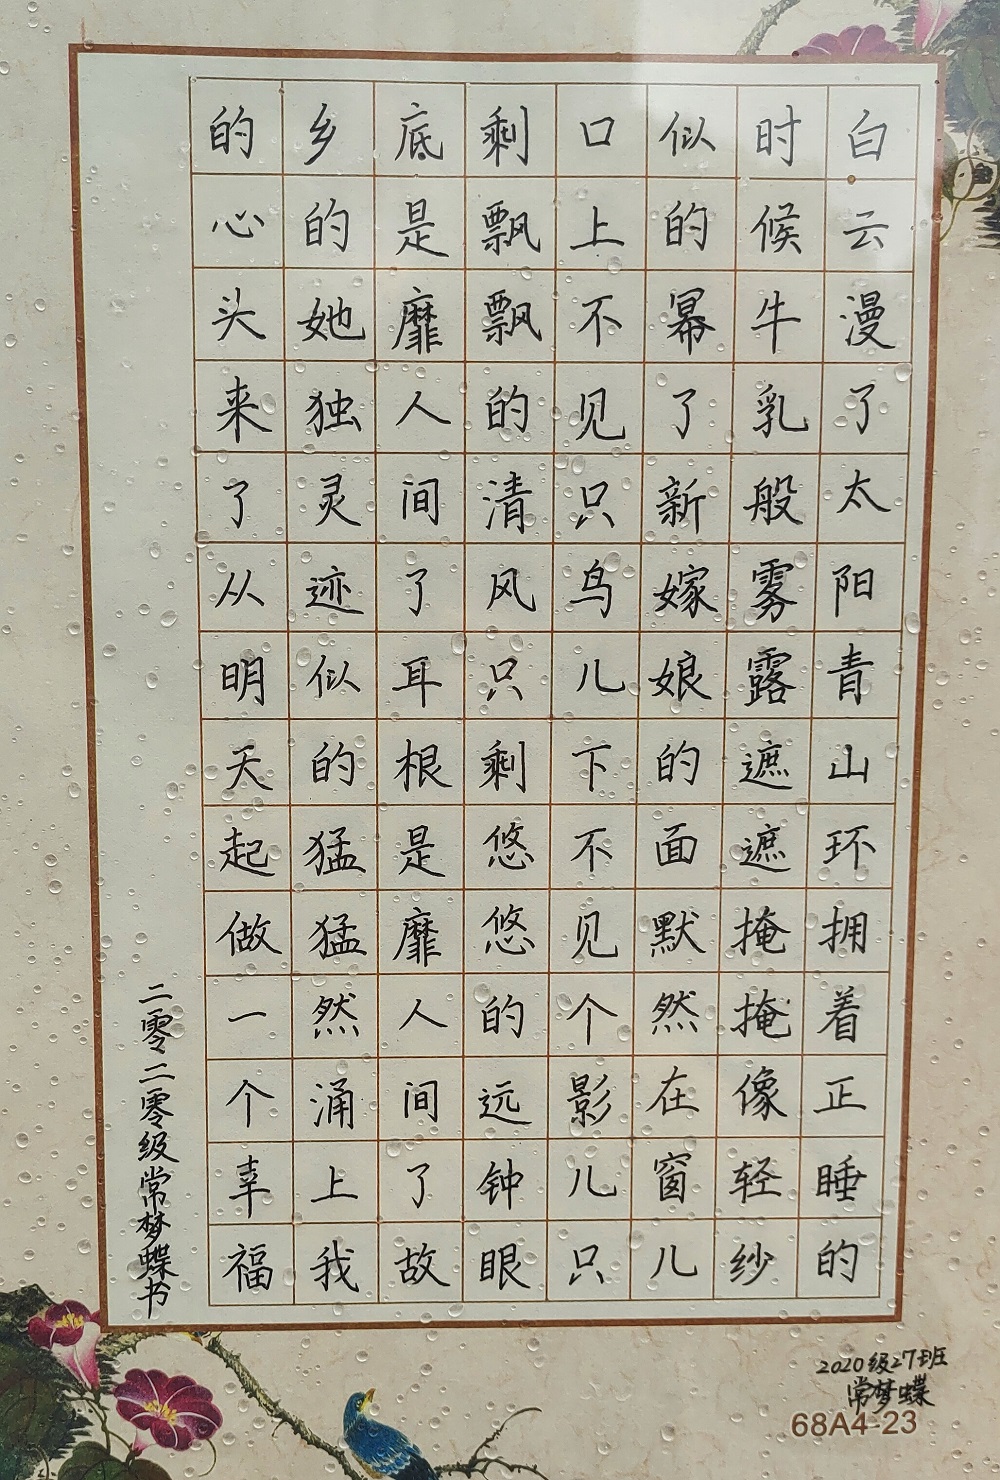 白云漫了太阳青山环拥着正睡的
时候牛乳般雾露遮遮掩掩像轻纱
似的幂了新嫁娘的面默然在窗儿
口上不见只鸟儿下不见个影儿只
剩飘飘的清风只剩悠悠的远钟眼
底是靡人间了耳根是靡人间了故
乡的她独灵迹似的猛猛然涌上我
的心头来了从明天起做一个幸福
二零二零级常梦蝶书
2020级27班
常梦蝶
68A4-23